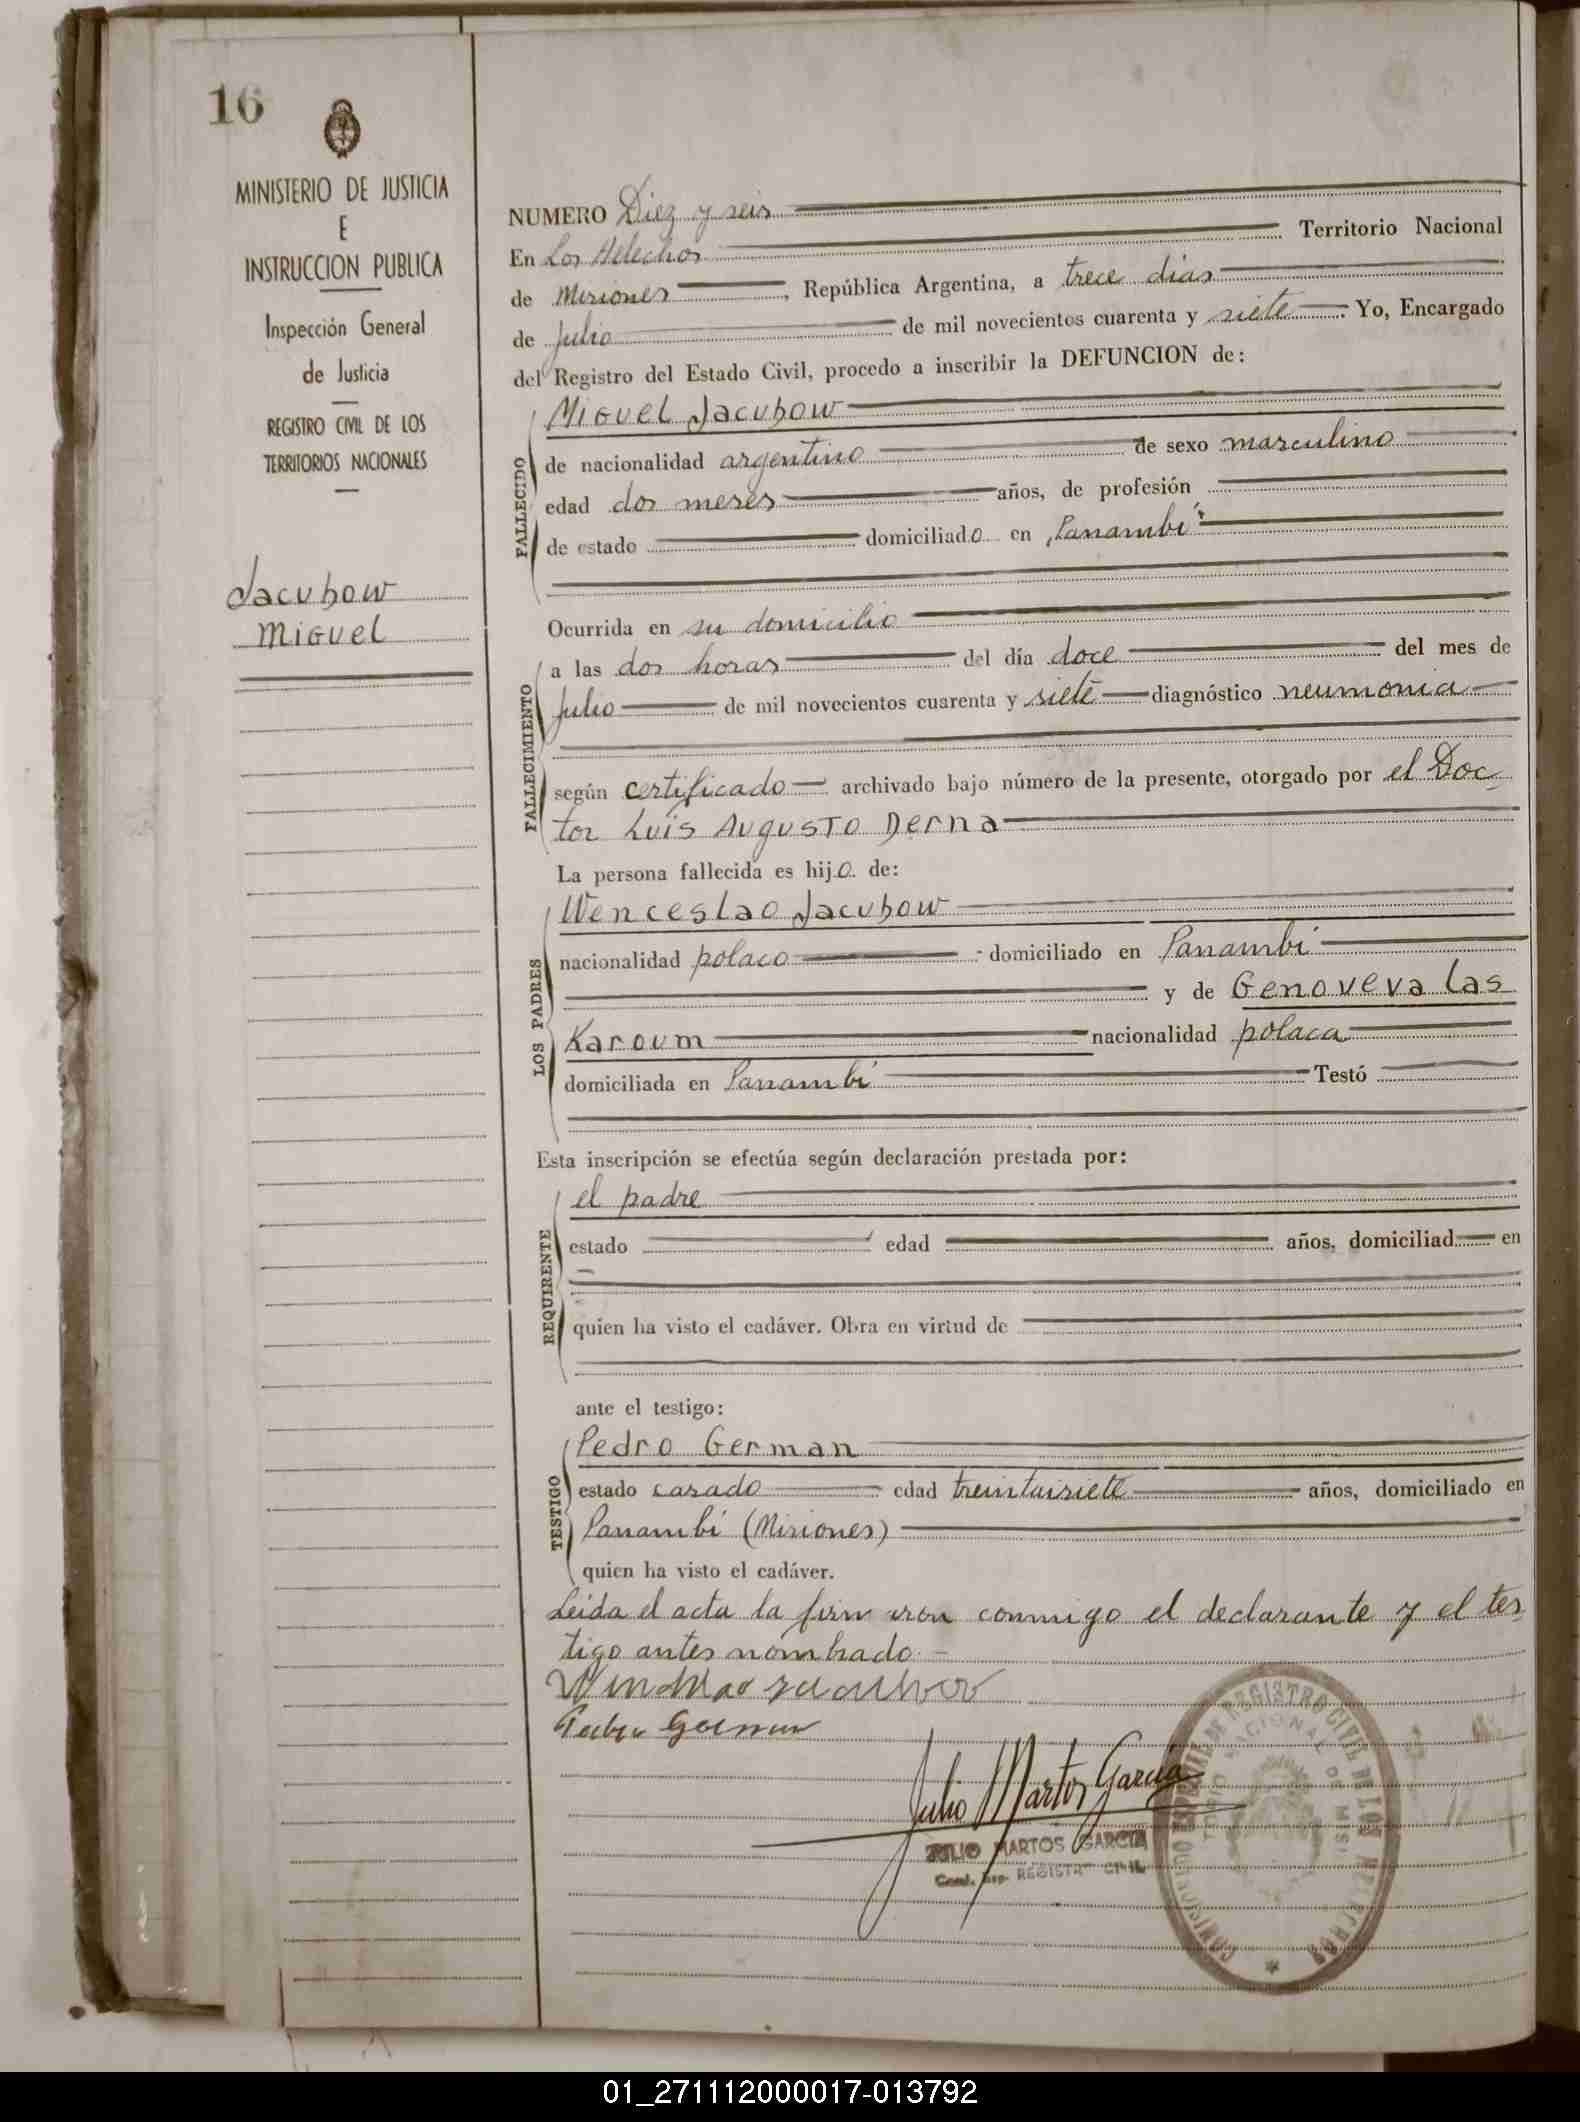 16
MINISTERIO DE JUSTICIA
E
INSTRUCCION PUBLICA
Inspección General
de Justicia
REGISTRO CIVIL DE LOS
TERRITORIOS NACIONALES
Jacubow
Miguel
NUMERO Diez y seis
En Los Helechos Territorio Nacional
de Misiones, República Argentina, a trece dias
de Julio de mil novecientos cuarenta y siete. Yo, Encargado
del Registro del Estado Civil, procedo a inscribir la DEFUNCION de:
FALLECIDO
Miguel Jacubow
de nacionalidad argentino de sexo masculino
edad dos meses años, de profesión
de estado domiciliado en Panambí
FALLECIMIENTO
Ocurrida en su domicilio
a las dos horas del día doce del mes de
Julio de mil novecientos cuarenta y siete diagnóstico neumonia
según certificado archivado bajo número de la presente, otorgado por el Doc
tor Luis Augusto Derna
La persona fallecida es hijo de:
LOS PADRES
Wenceslao Jacubow
nacionalidad polaco domiciliado en Panambí
y de Genoveva Las
Karoum nacionalidad polaca
domiciliada en Panambí Testó
Esta inscripción se efectúa según declaración prestada por:
REQUIRENTE
el padre
estado edad años, domiciliad en
quien ha visto el cadáver. Obra en virtud de
ante el testigo:
TESTIGO
Pedro German
estado casado edad treintaisiete años, domiciliado en
Panambí (Misiones)
quien ha visto el cadáver.
Leida el acta la firmaron conmigo el declarante y el tes
tigo antes nombrado.-
Julio Martos García
JULIO MARTOS GARCIA
REGISTRO CIVIL
REGISTRO CIVIL DE LOS HELECHOS
01_271112000017-013792